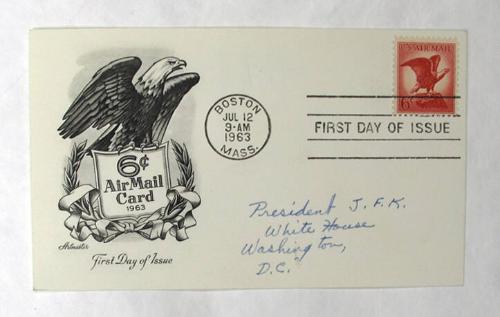 U.S. AIR MAIL
6¢
BOSTON
JUL 12
9-AM
1963
MASS.
FIRST DAY OF ISSUE
6¢
Air Mail
Card
1963
Artmaster
First Day of Issue
President J.F.K.
White House
Washington,
D.C.